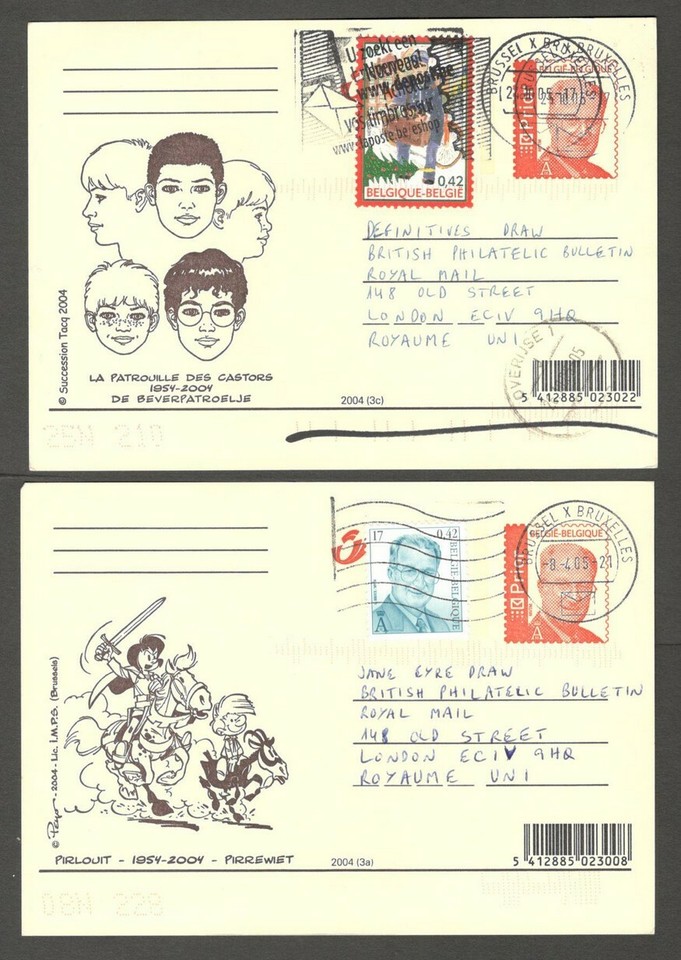 U zoekt een
Nouveau!
www.deposte.be
vos timbres sur
www.laposte.be/eshop
0,42
BELGIQUE-BELGIË
BRUSSEL X BRUXELLES
BELGIË-BELGIQUE
Prior
A
DEFINITIVES DRAW
BRITISH PHILATELIC BULLETIN
ROYAL MAIL
148 OLD STREET
LONDON EC1V 9HQ
ROYAUME UNI
OVERIJSE 1
© Succession Tacq 2004
LA PATROUILLE DES CASTORS
1954-2004
DE BEVERPATROELJE
2004 (3c)
5 412885 023022
2EN 210
17 0,42
BELGIË-BELGIQUE
A
BRUSSEL X BRUXELLES
-8-4.05-21
BELGIË-BELGIQUE
Prior
A
JANE EYRE DRAW
BRITISH PHILATELIC BULLETIN
ROYAL MAIL
148 OLD STREET
LONDON EC1V 9HQ
ROYAUME UNI
© Peyo - 2004 - Lic. I.M.P.S. (Brussels)
PIRLOUIT - 1954-2004 - PIRREWIET
2004 (3a)
5 412885 023008
08N 228